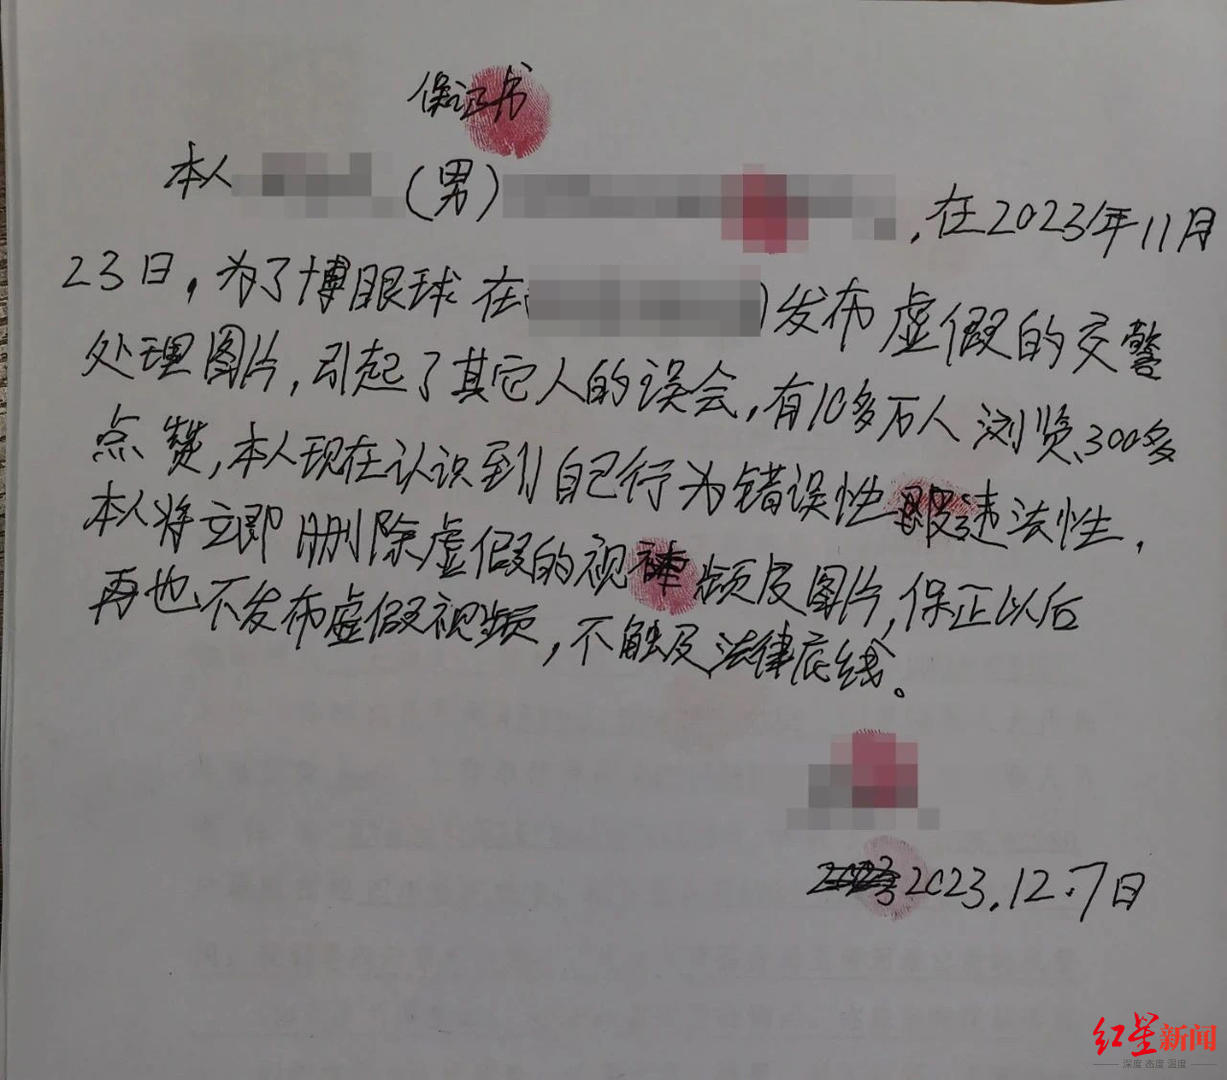 保证书
本人 (男) ,在2023年11月
23日,为了博眼球在( )发布虚假的交警
处理图片,引起了其它人的误会,有10多万人浏览、300多
点赞,本人现在认识到自己行为错误性 违法性,
本人将立即删除虚假的视 频及图片,保正以后
再也不发布虚假视频,不触及法律底线。
2023.12.7日
红星新闻
深度 态度 温度